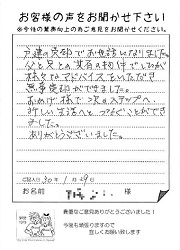 お客様の声をお聞かせ下さい
※今後の業務向上の為ご意見をお聞かせください。
戸建の売却でお世話になりました。
父と兄との共有の物件でしたが
様々なアドバイスをいただき
無事売却ができました。
おかげ様で次のステップへ
新しい生活へとつなぐことができ
ました。
ありがとうございました。
記入日30年1月29日
お名前 様
貴重なご意見ありがとうございました！
今後も頑張りますので
宜しくお願い致します